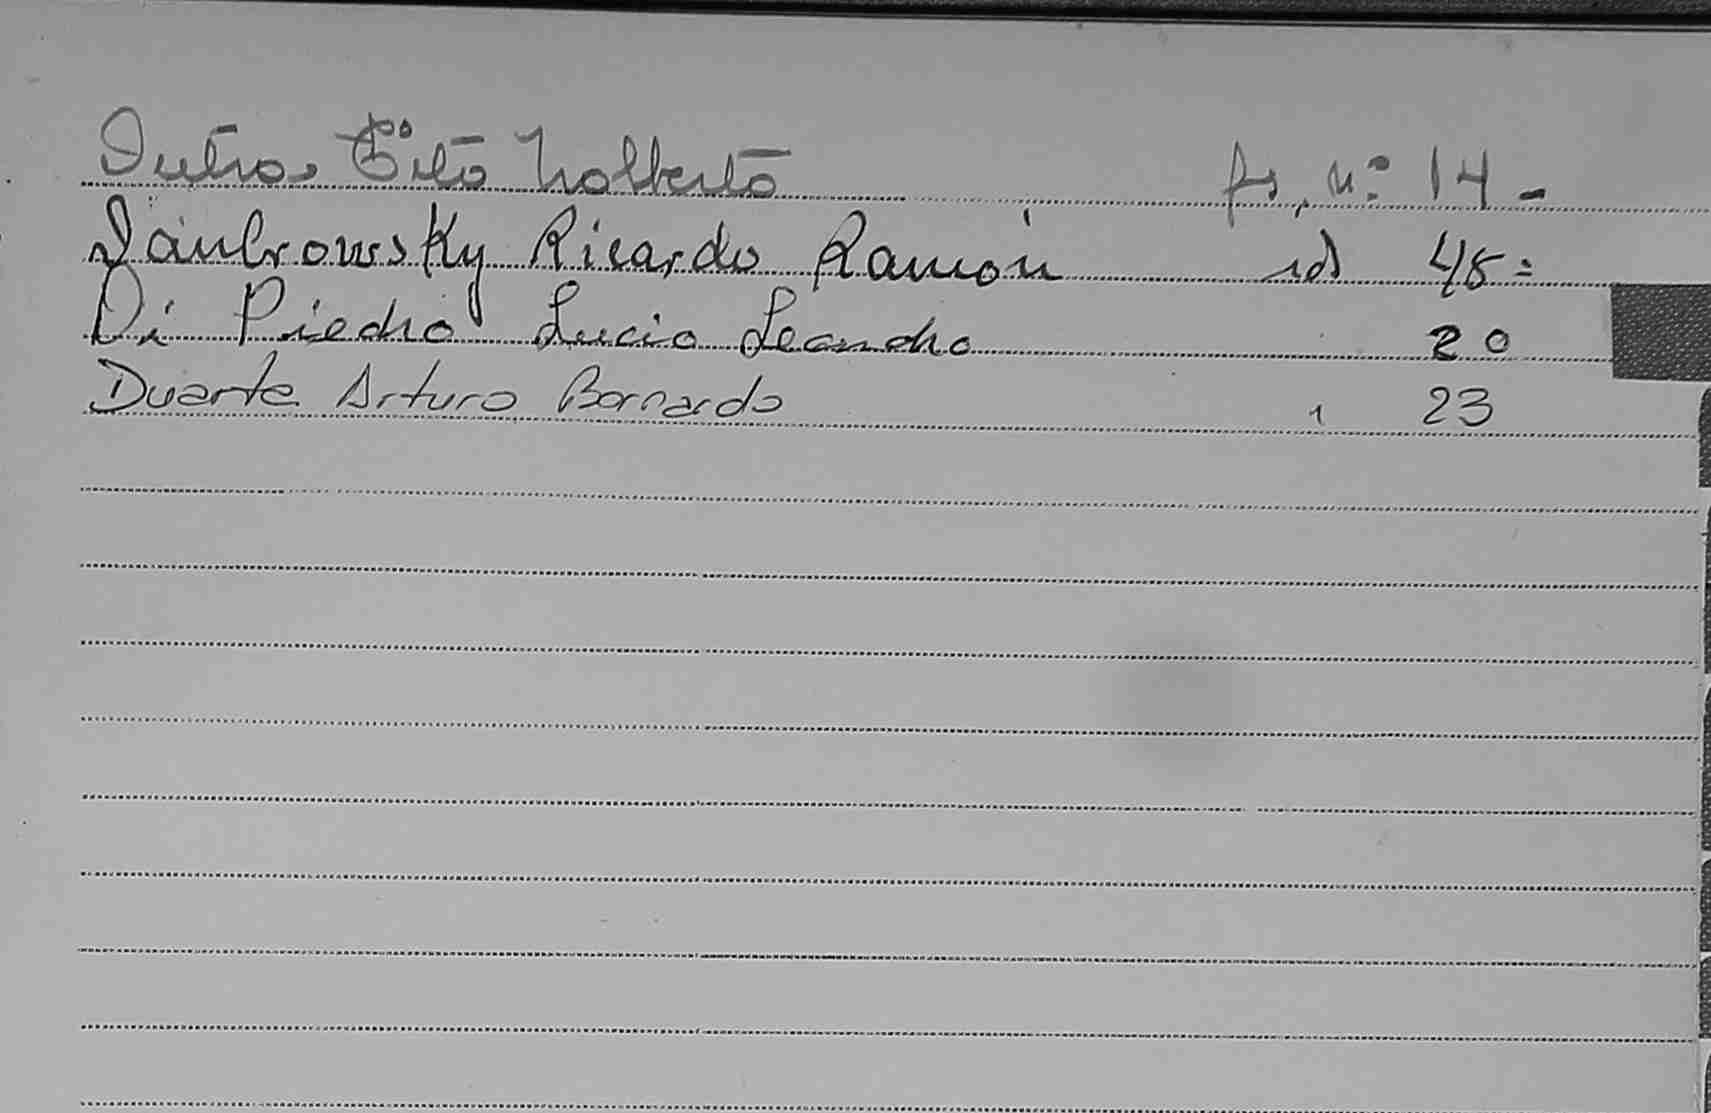 Dutra, Tito Nolberto fs, nº 14 -
Dambrowsky Ricardo Ramón id 45 =
Di Piedro Lucio Leandro 20
Duarte Arturo Bernardo 23